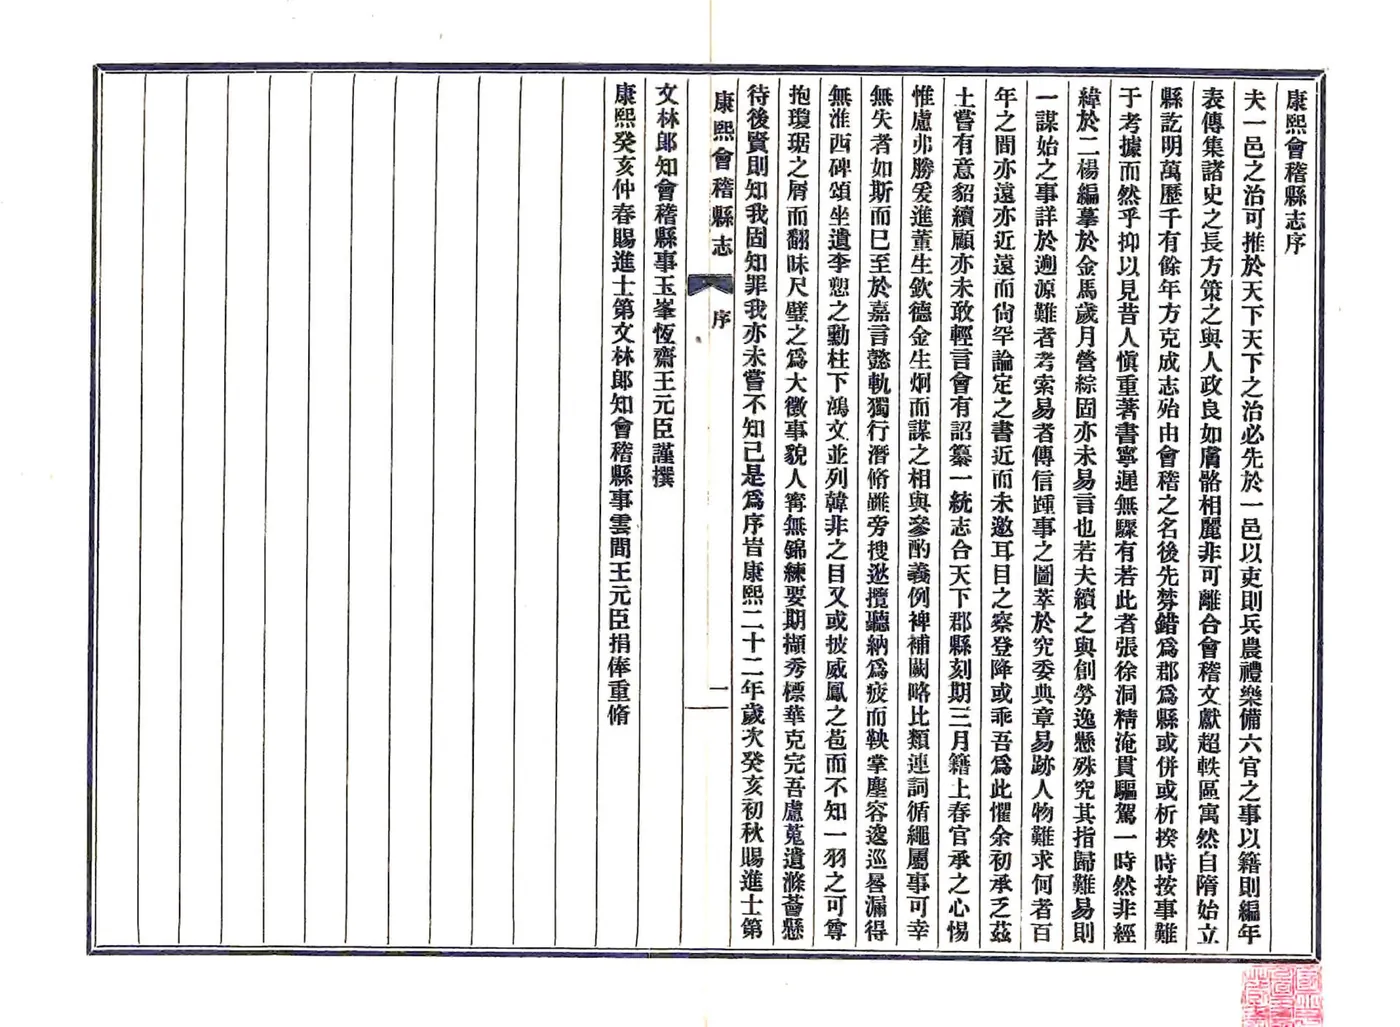 康熙會稽縣志序
夫一邑之治可推於天下天下之治必先於一邑以吏則兵農禮樂備六官之事以籍則編年
表傳集諸史之長方策之與人政良如膚骼相麗非可離合會稽文獻超軼區寓然自隋始立
縣訖明萬歷千有餘年方克成志殆由會稽之名後先棼錯爲郡爲縣或併或析揆時按事難
于考據而然乎抑以見昔人愼重著書寧遲無驟有若此者張徐洞精淹貫驅駕一時然非經
緯於二楊編摹於金馬歲月營綜固亦未易言也若夫續之與創勞逸懸殊究其指歸難易則
一謀始之事詳於遡源難者考索易者傳信踵事之圖萃於究委典章易跡人物難求何者百
年之間亦遠亦近遠而尙罕論定之書近而未邀耳目之察登降或乖吾爲此懼余初承乏茲
土嘗有意貂續顧亦未敢輕言會有詔纂一統志合天下郡縣刻期三月籍上春官承之心惕
惟慮弗勝爰進董生欽德金生炯而謀之相與參酌義例裨補闕略比類連詞循繩屬事可幸
無失者如斯而已至於嘉言懿軌獨行潛脩雖旁搜逖攬聽納爲疲而鞅掌塵容逡巡晷漏得
無淮西碑頌坐遺李愬之勳柱下鴻文並列韓非之目又或披威鳳之苞而不知一羽之可尊
抱瓊琚之屑而翻昧尺璧之爲大徵事貌人寗無錦練要期擷秀標華克完吾慮蒐遺滌薈懸
待後賢則知我固知罪我亦未嘗不知已是爲序旹康熙二十二年歲次癸亥初秋賜進士第
康熙會稽縣志
序
一
文林郎知會稽縣事玉峯恆齋王元臣謹撰
康熙癸亥仲春賜進士第文林郎知會稽縣事雲間王元臣捐俸重脩